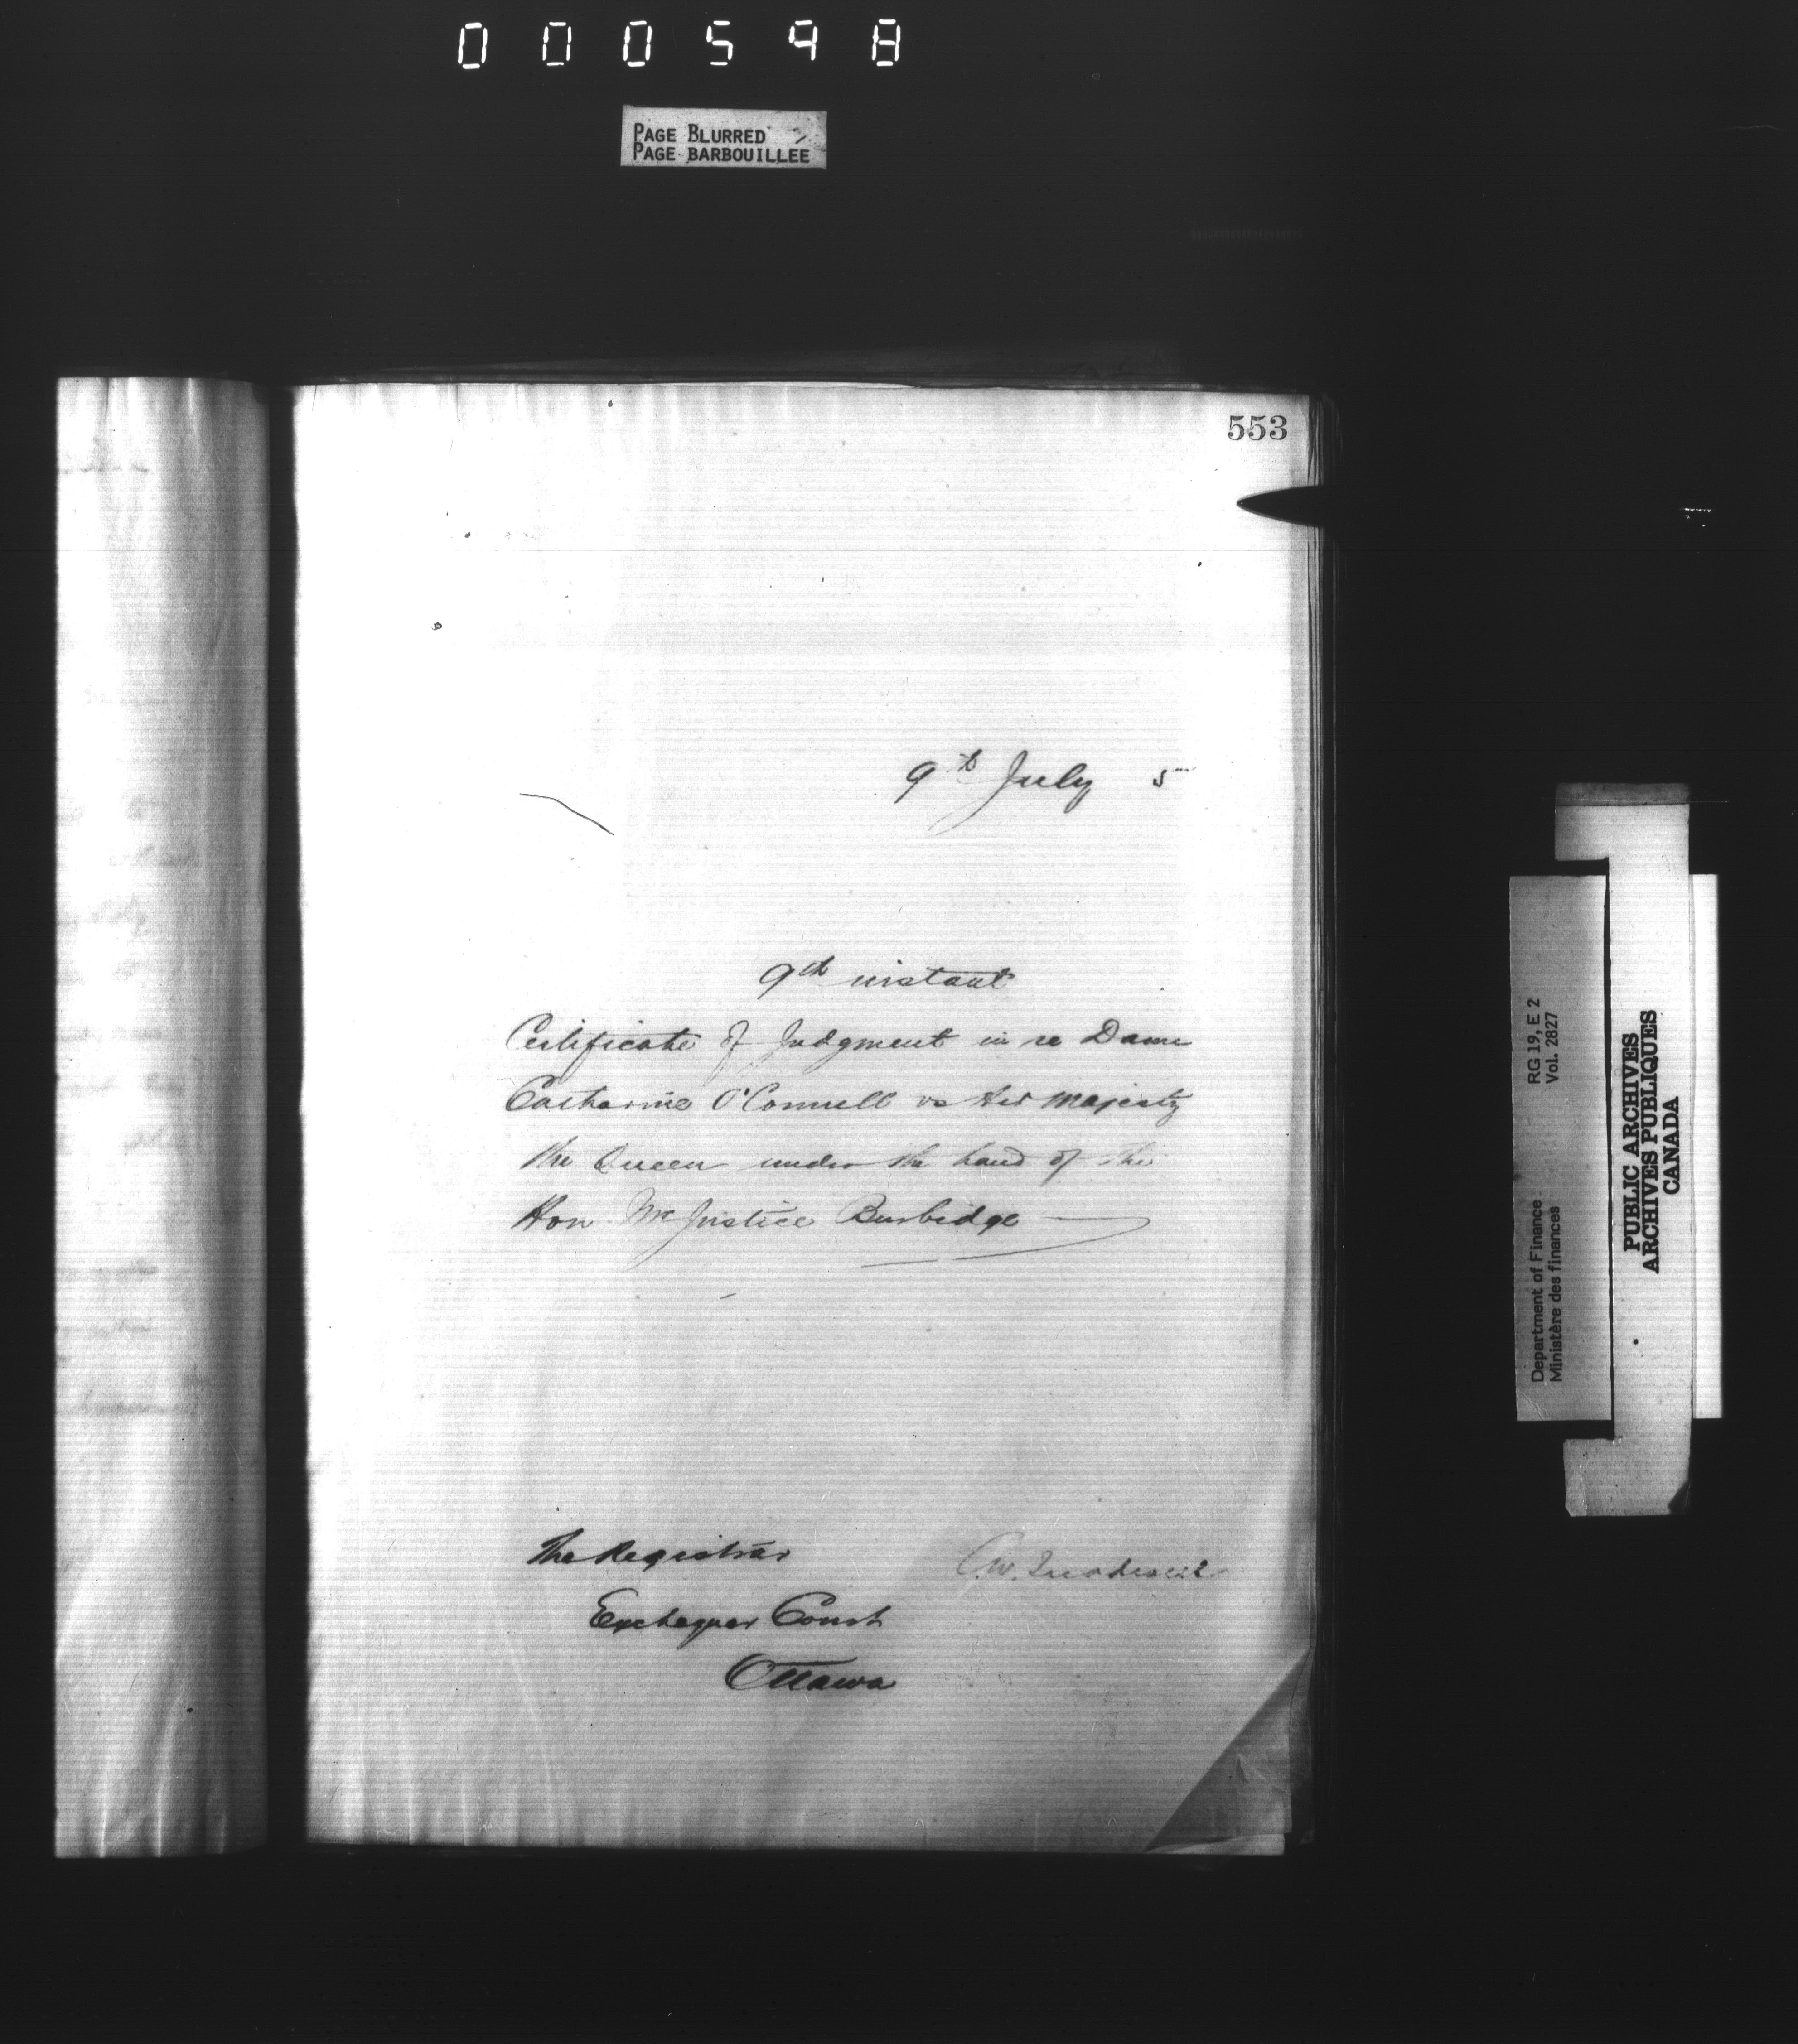 000548
PAGE BLURRED
PAGE BARBOUILLEE
553
9th July 5
9th instant
Certificate of Judgment in re Dame
Catharine O'Connell vs Her Majesty
the Queen under the hand of the
Hon. Mr Justice Burbidge
The Registrar
C.W. Treadwell
Exchequer Court
Ottawa
RG 19, E 2
Vol. 2827
Department of Finance
Ministère des finances
PUBLIC ARCHIVES
ARCHIVES PUBLIQUES
CANADA